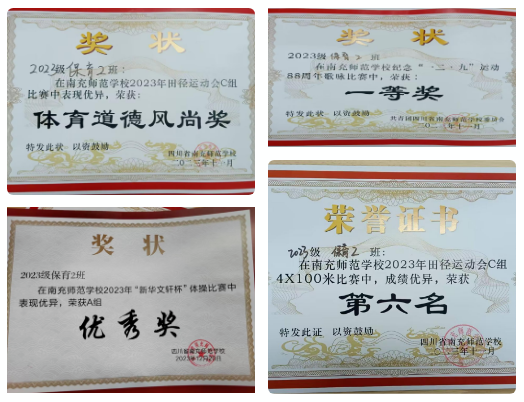 奖 状
2023级保育2班：
在南充师范学校2023年田径运动会C组
比赛中表现优异，荣获：
体育道德风尚奖
特发此状 以资鼓励
四川省南充师范学校
二〇二三年十一月
奖 状
2023级保育2班：
在南充师范学校纪念“一二·九”运动
88周年歌咏比赛中，荣获：
一等奖
特发此状 以资鼓励
奖 状
2023级保育2班
在南充师范学校2023年“新华文轩杯”体操比赛中
表现优异，荣获A组
优秀奖
特发此状，以资鼓励
四川省南充师范学校
荣誉证书
2023级 保育2 班：
在南充师范学校2023年田径运动会C组
4X100米比赛中，成绩优异，荣获
第六名
特发此证 以资鼓励
四川省南充师范学校
二〇二三年十一月